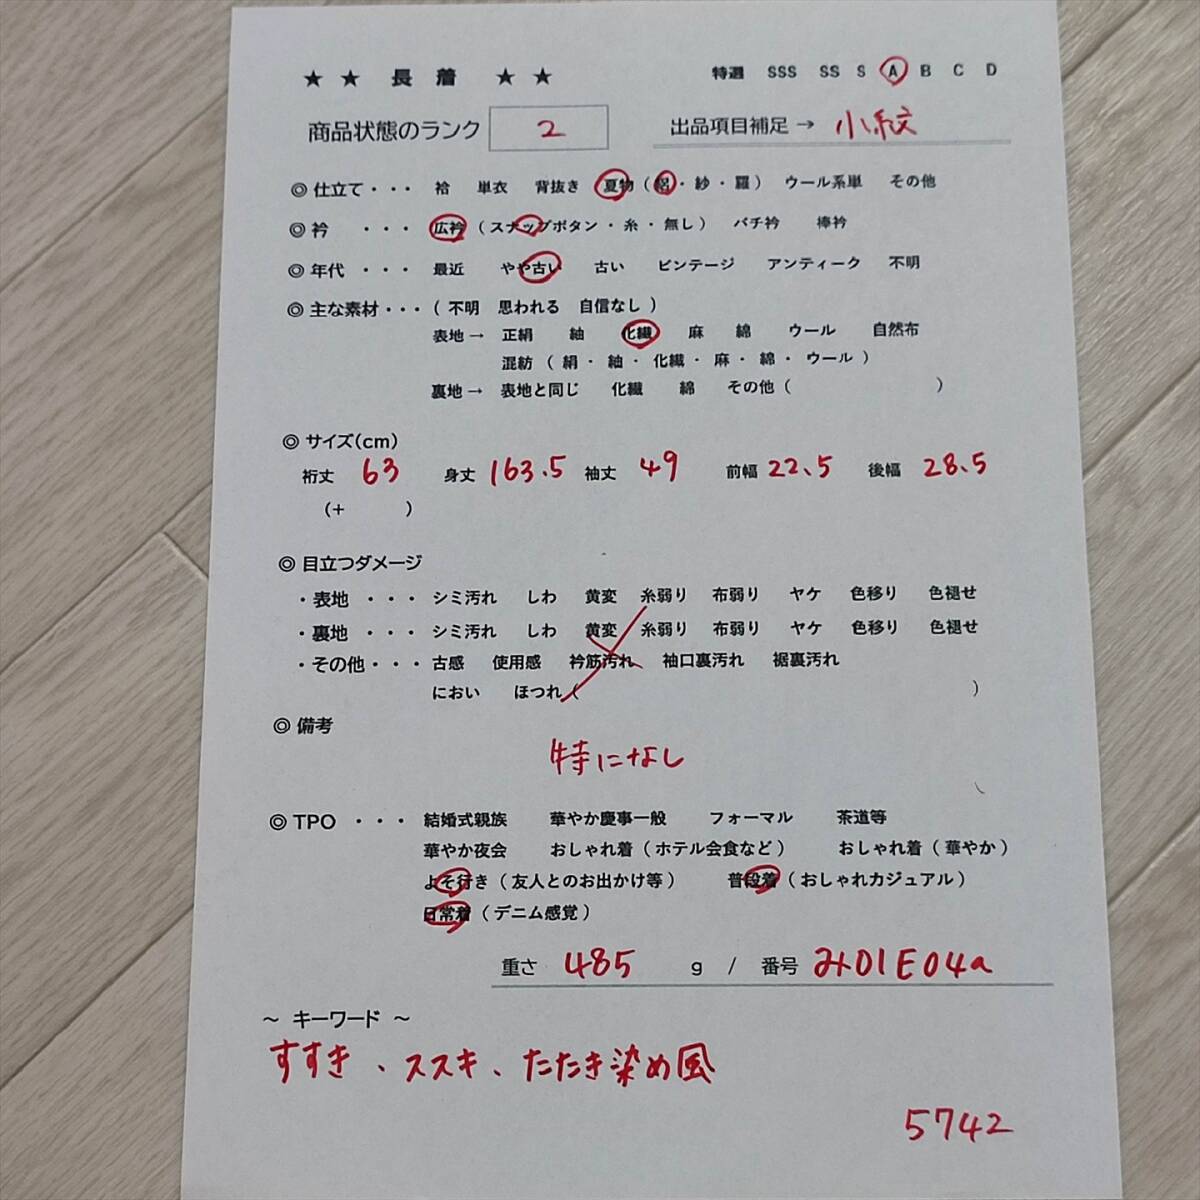 ★ ★ 長 着 ★ ★ 特選 SSS SS S A B C D
商品状態のランク 2 出品項目補足 → 小紋
◎ 仕立て・・・ 袷 単衣 背抜き 夏物 ( 絽 ・ 紗 ・ 羅 ) ウール系単 その他
◎ 衿 ・・・ 広衿 ( スナップボタン ・ 糸 ・ 無し ) バチ衿 棒衿
◎ 年代 ・・・ 最近 やや古い 古い ビンテージ アンティーク 不明
◎ 主な素材・・・ ( 不明 思われる 自信なし )
表地 → 正絹 紬 化繊 麻 綿 ウール 自然布
混紡 ( 絹 ・ 紬 ・ 化繊 ・ 麻 ・ 綿 ・ ウール )
裏地 → 表地と同じ 化繊 綿 その他 ( )
◎ サイズ(cm)
裄丈 63 身丈 163.5 袖丈 49 前幅 22.5 後幅 28.5
(+ )
◎ 目立つダメージ
・表地 ・・・ シミ汚れ しわ 黄変 糸弱り 布弱り ヤケ 色移り 色褪せ
・裏地 ・・・ シミ汚れ しわ 黄変 糸弱り 布弱り ヤケ 色移り 色褪せ
・その他・・・ 古感 使用感 衿筋汚れ 袖口裏汚れ 裾裏汚れ
におい ほつれ ( )
◎ 備考
特になし
◎ TPO ・・・ 結婚式親族 華やか慶事一般 フォーマル 茶道等
華やか夜会 おしゃれ着 ( ホテル会食など ) おしゃれ着 ( 華やか )
よそ行き ( 友人とのお出かけ等 ) 普段着 ( おしゃれカジュアル )
日常着 ( デニム感覚 )
重さ 485 g / 番号 み01E04a
~ キーワード ~
すすき、ススキ、たたき染め風
5742